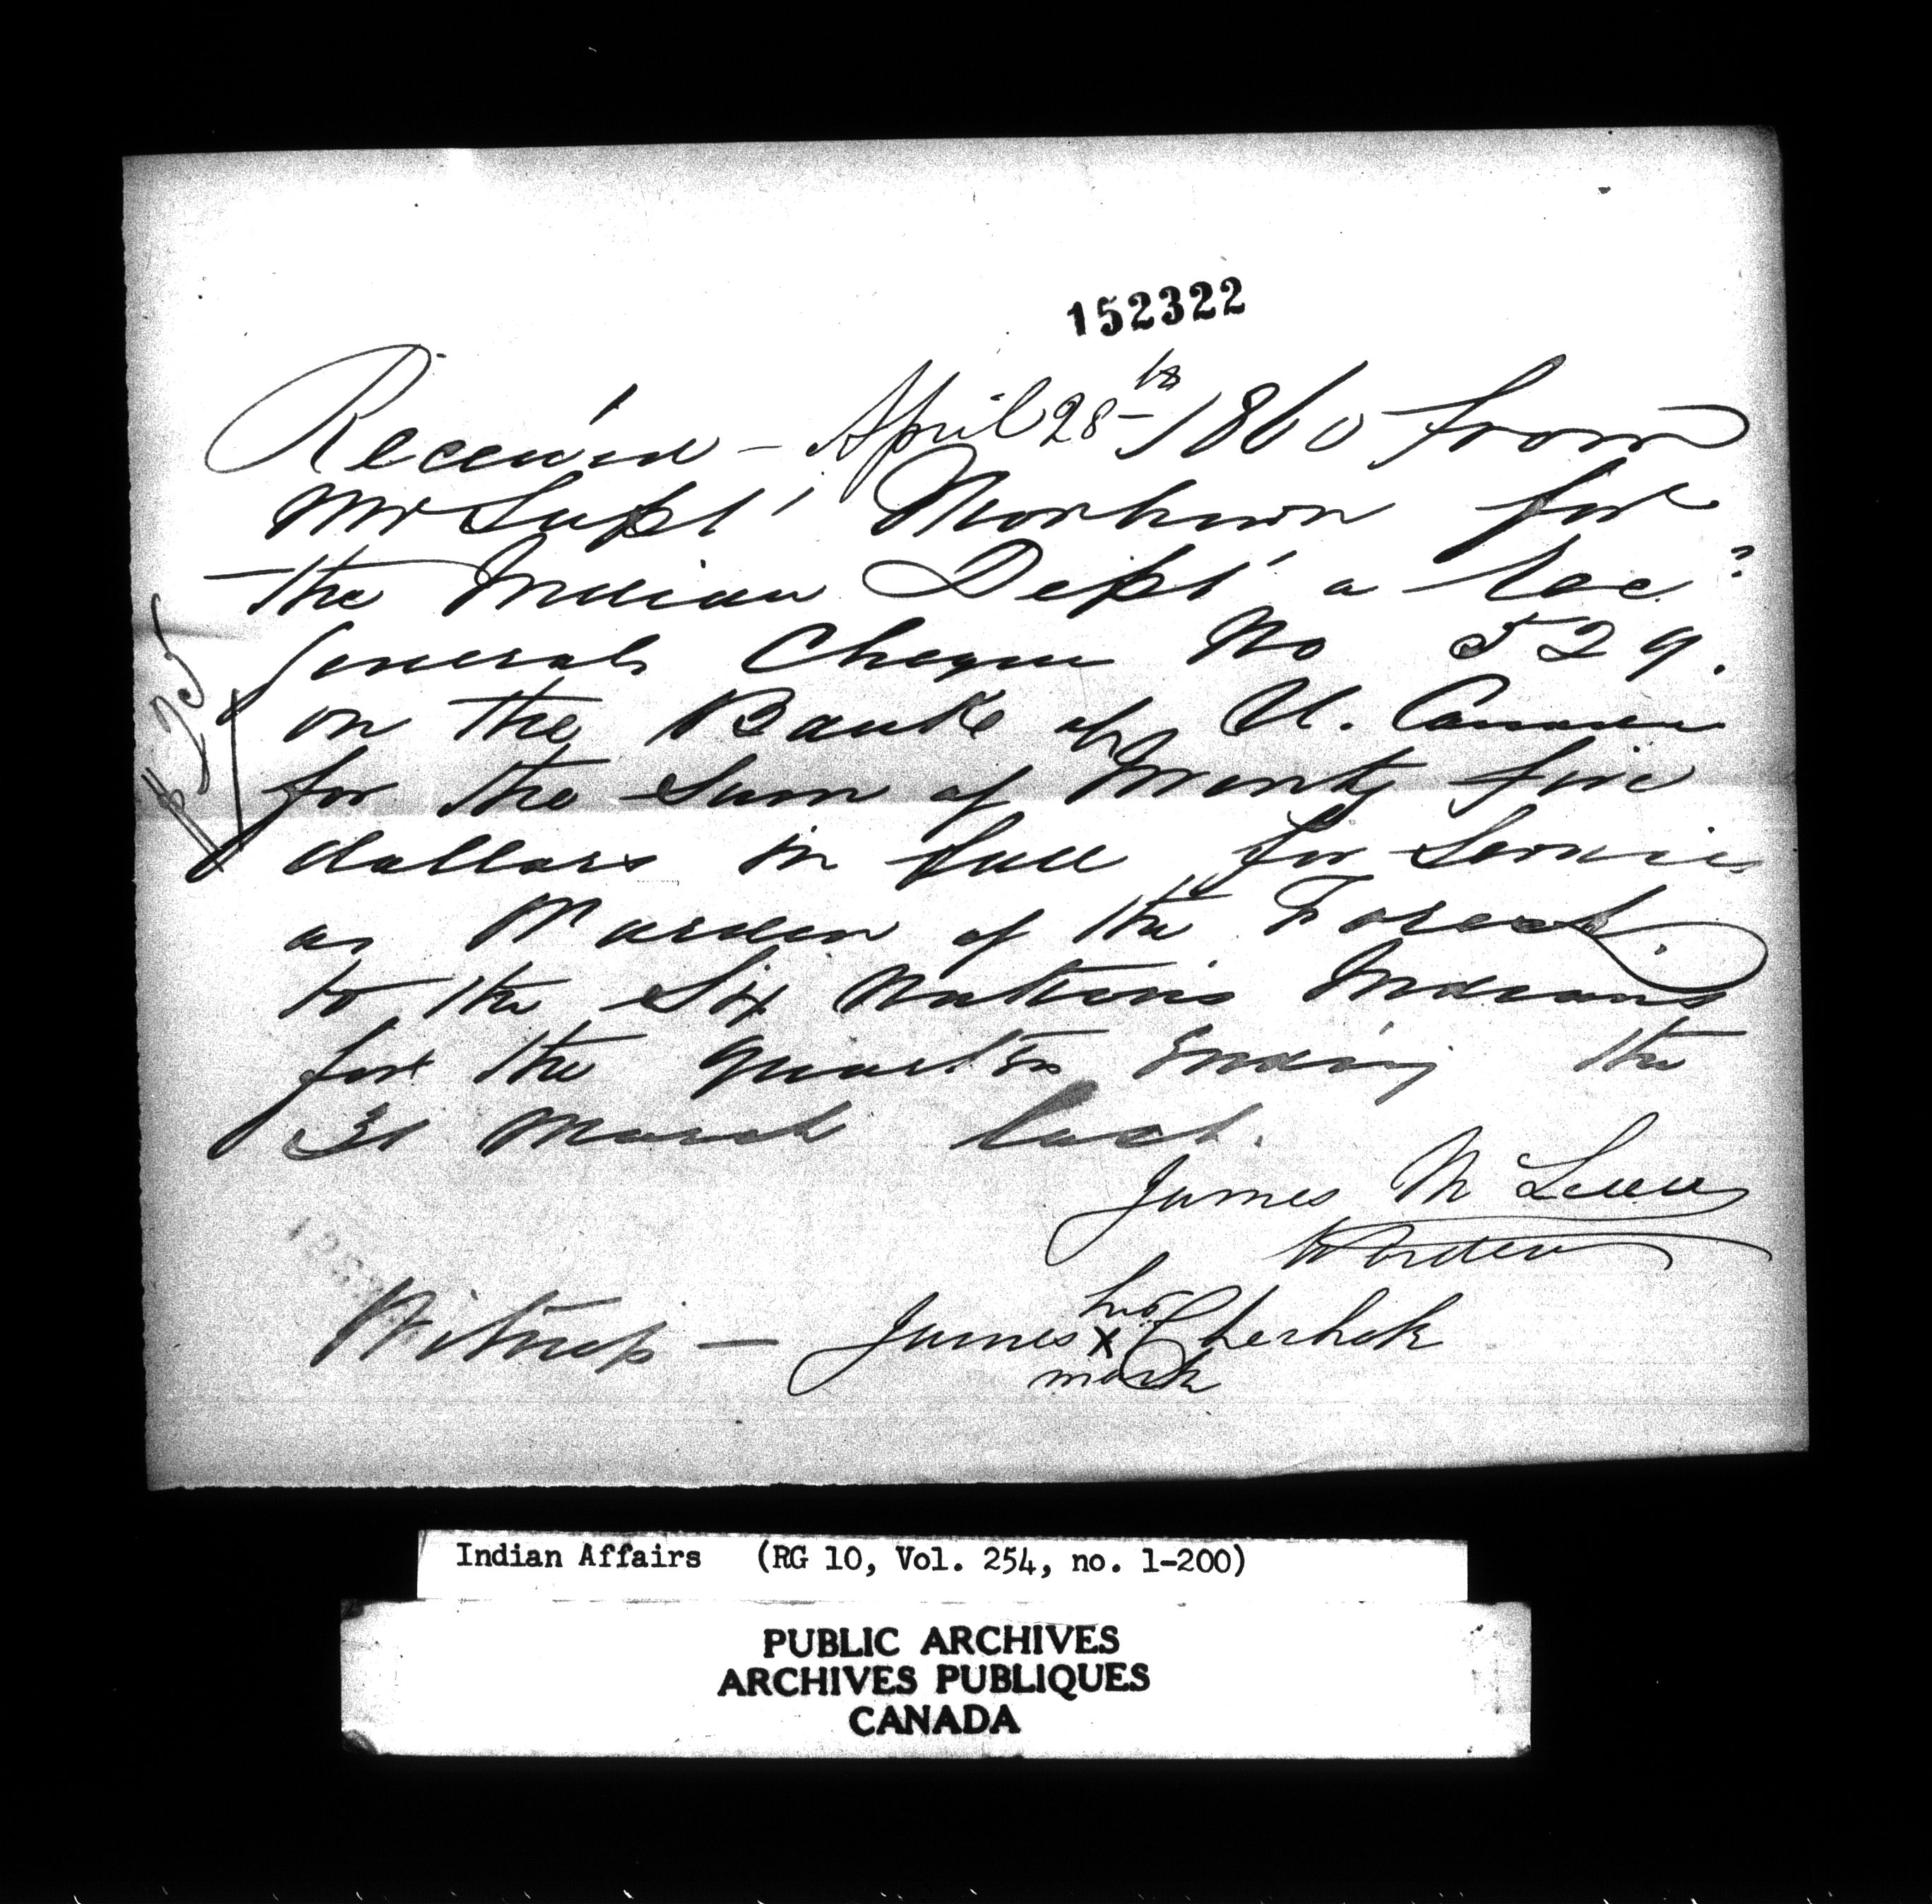 152322
Received - April 28th 1860 from
Mr Supt Morhown for
the Indian Dept a Rec
Generals Cheque No 529.
on the Bank of U. Canada
for the Sum of Twenty five
dollars in full for Services
as Warden of the Forest.
to the Six Nations Indians
for the quarter Ending the
31 March last.
$25
James M Lewis
Warden
Witness - James his X mark
Indian Affairs (RG 10, Vol. 254, no. 1-200)
PUBLIC ARCHIVES
ARCHIVES PUBLIQUES
CANADA